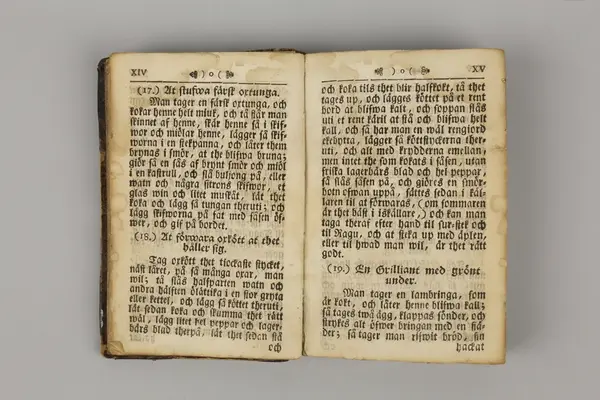 XIV ) o (
(17.) At stufwa färsk oxtunga.
Man tager en färsk oxtunga, och
kokar henne helt miuk, och tå står man
skinnet af henne, skär henne så i skif-
wor och miölar henne, lägger så skif-
worna i en stekpanna, och låter them
brynas i smör, at the blifwa bruna;
giör så en sås af brynt smör och miöl
i en kastrull, och slå buljong på, eller
watn och några sitrons skifwor, et
glas win och litet muskåt, låt thet
koka och lägg så tungan theruti; och
lägg skifworna på fat med såsen öf-
wer, och gif på bordet.
(18.) At förwara oxkött at thet
håller sig.
Tag oxkött thet tiockaste stycket,
näst låret, på så många oxar, man
wil; tå slås halfparten watn och
andra hälften ölättika i en stor gryta
eller kettel, och lägg så köttet theruti,
låt sedan koka och skumma thet rätt
wäl, lägg litet hel peppar och lager-
bärs blad therpå, låt thet sedan stå
och
) o ( XV
och koka tils thet blir halfkokt, tå thet
tages up, och lägges köttet på et rent
bord at blifwa kalt, och soppan slås
uti et rent käril at stå och blifwa helt
kall, och så har man en wäl rengiord
ekebytta, lägger så köttstyckerna ther-
uti, och alt med krydderna emellan,
men intet the som kokats i såsen, utan
friska lagerbärs blad och hel peppar,
så slås såsen på, och giöres en smör-
botn ofwan uppå, sättes sedan i käl-
laren til at förwaras, (om sommaren
är thet bäst i iskällare,) och kan man
taga theraf efter hand til sur-stek och
til Ragu, och at steka up med äplen,
eller til hwad man wil, är thet rätt
godt.
(19.) En Grilliant med grönt
under.
Man tager en lambringa, som
är kokt, och låter henne blifwa kall;
så tages twå ägg, klappas sönder, och
strykes alt öfwer bringan med en fiä-
der; så tager man rifwit bröd, fin
hackat